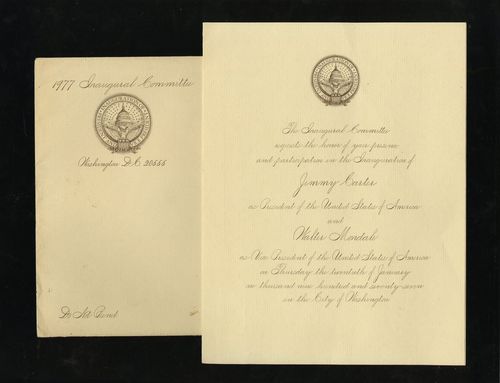 1977 Inaugural Committee
Washington D.C. 20555
Do Not Bend
The Inaugural Committee
requests the honor of your presence
and participation in the Inauguration of
Jimmy Carter
as President of the United States of America
and
Walter Mondale
as Vice President of the United States of America
on Thursday the twentieth of January
one thousand nine hundred and seventy-seven
in the City of Washington